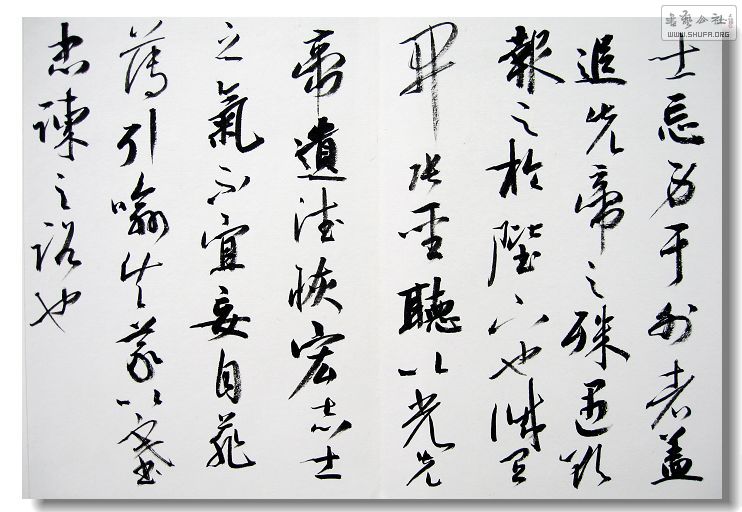 士忘身于外者盖
追先帝之殊遇欲
报之於陛下也诚宜
开张圣聽以光先
帝遺德恢宏志士
之氣不宜妄自菲
薄引喻失義以塞
忠谏之路也
書藝公社
WWW.SHUFA.ORG